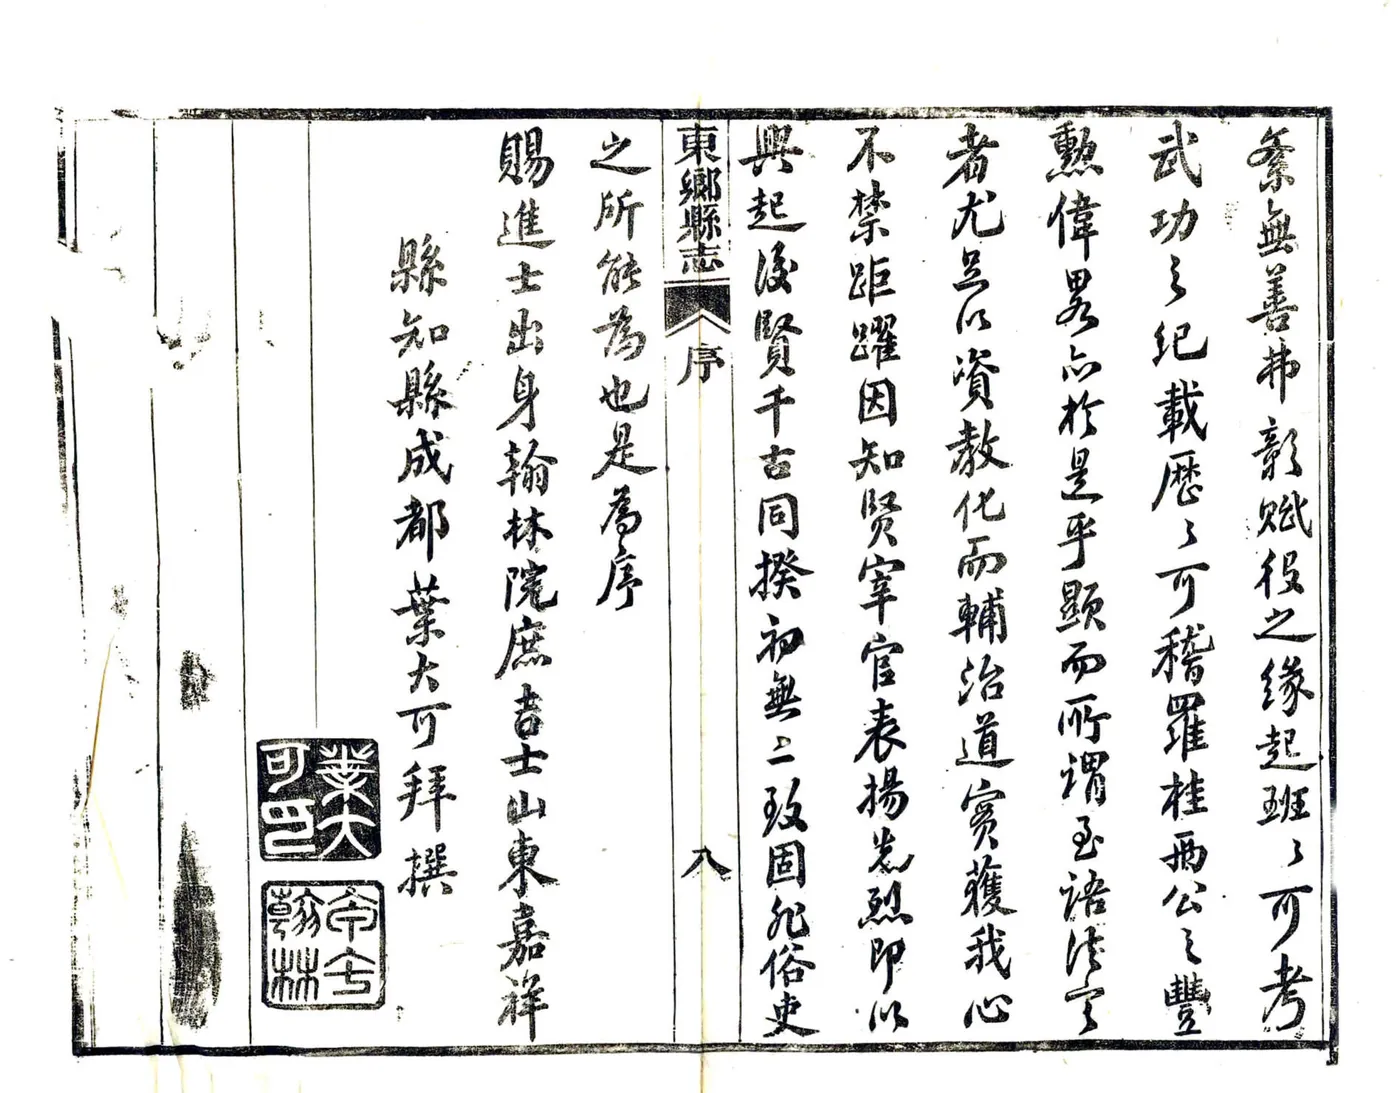 纂無善弗彰賦役之緣起班〻可考
武功之紀載歷〻可稽羅桂兩公之豐
勲偉畧亦於是乎顯而所謂至語法言
者尤足以資教化而輔治道實獲我心
不禁距躍因知賢宰官表揚先烈即以
興起後賢千古同揆初無二致固非俗吏
東鄉縣志
序
八
之所能為也是為序
賜進士出身翰林院庶吉士山東嘉祥
縣知縣成都葉大可拜撰
葉大可印
翰林